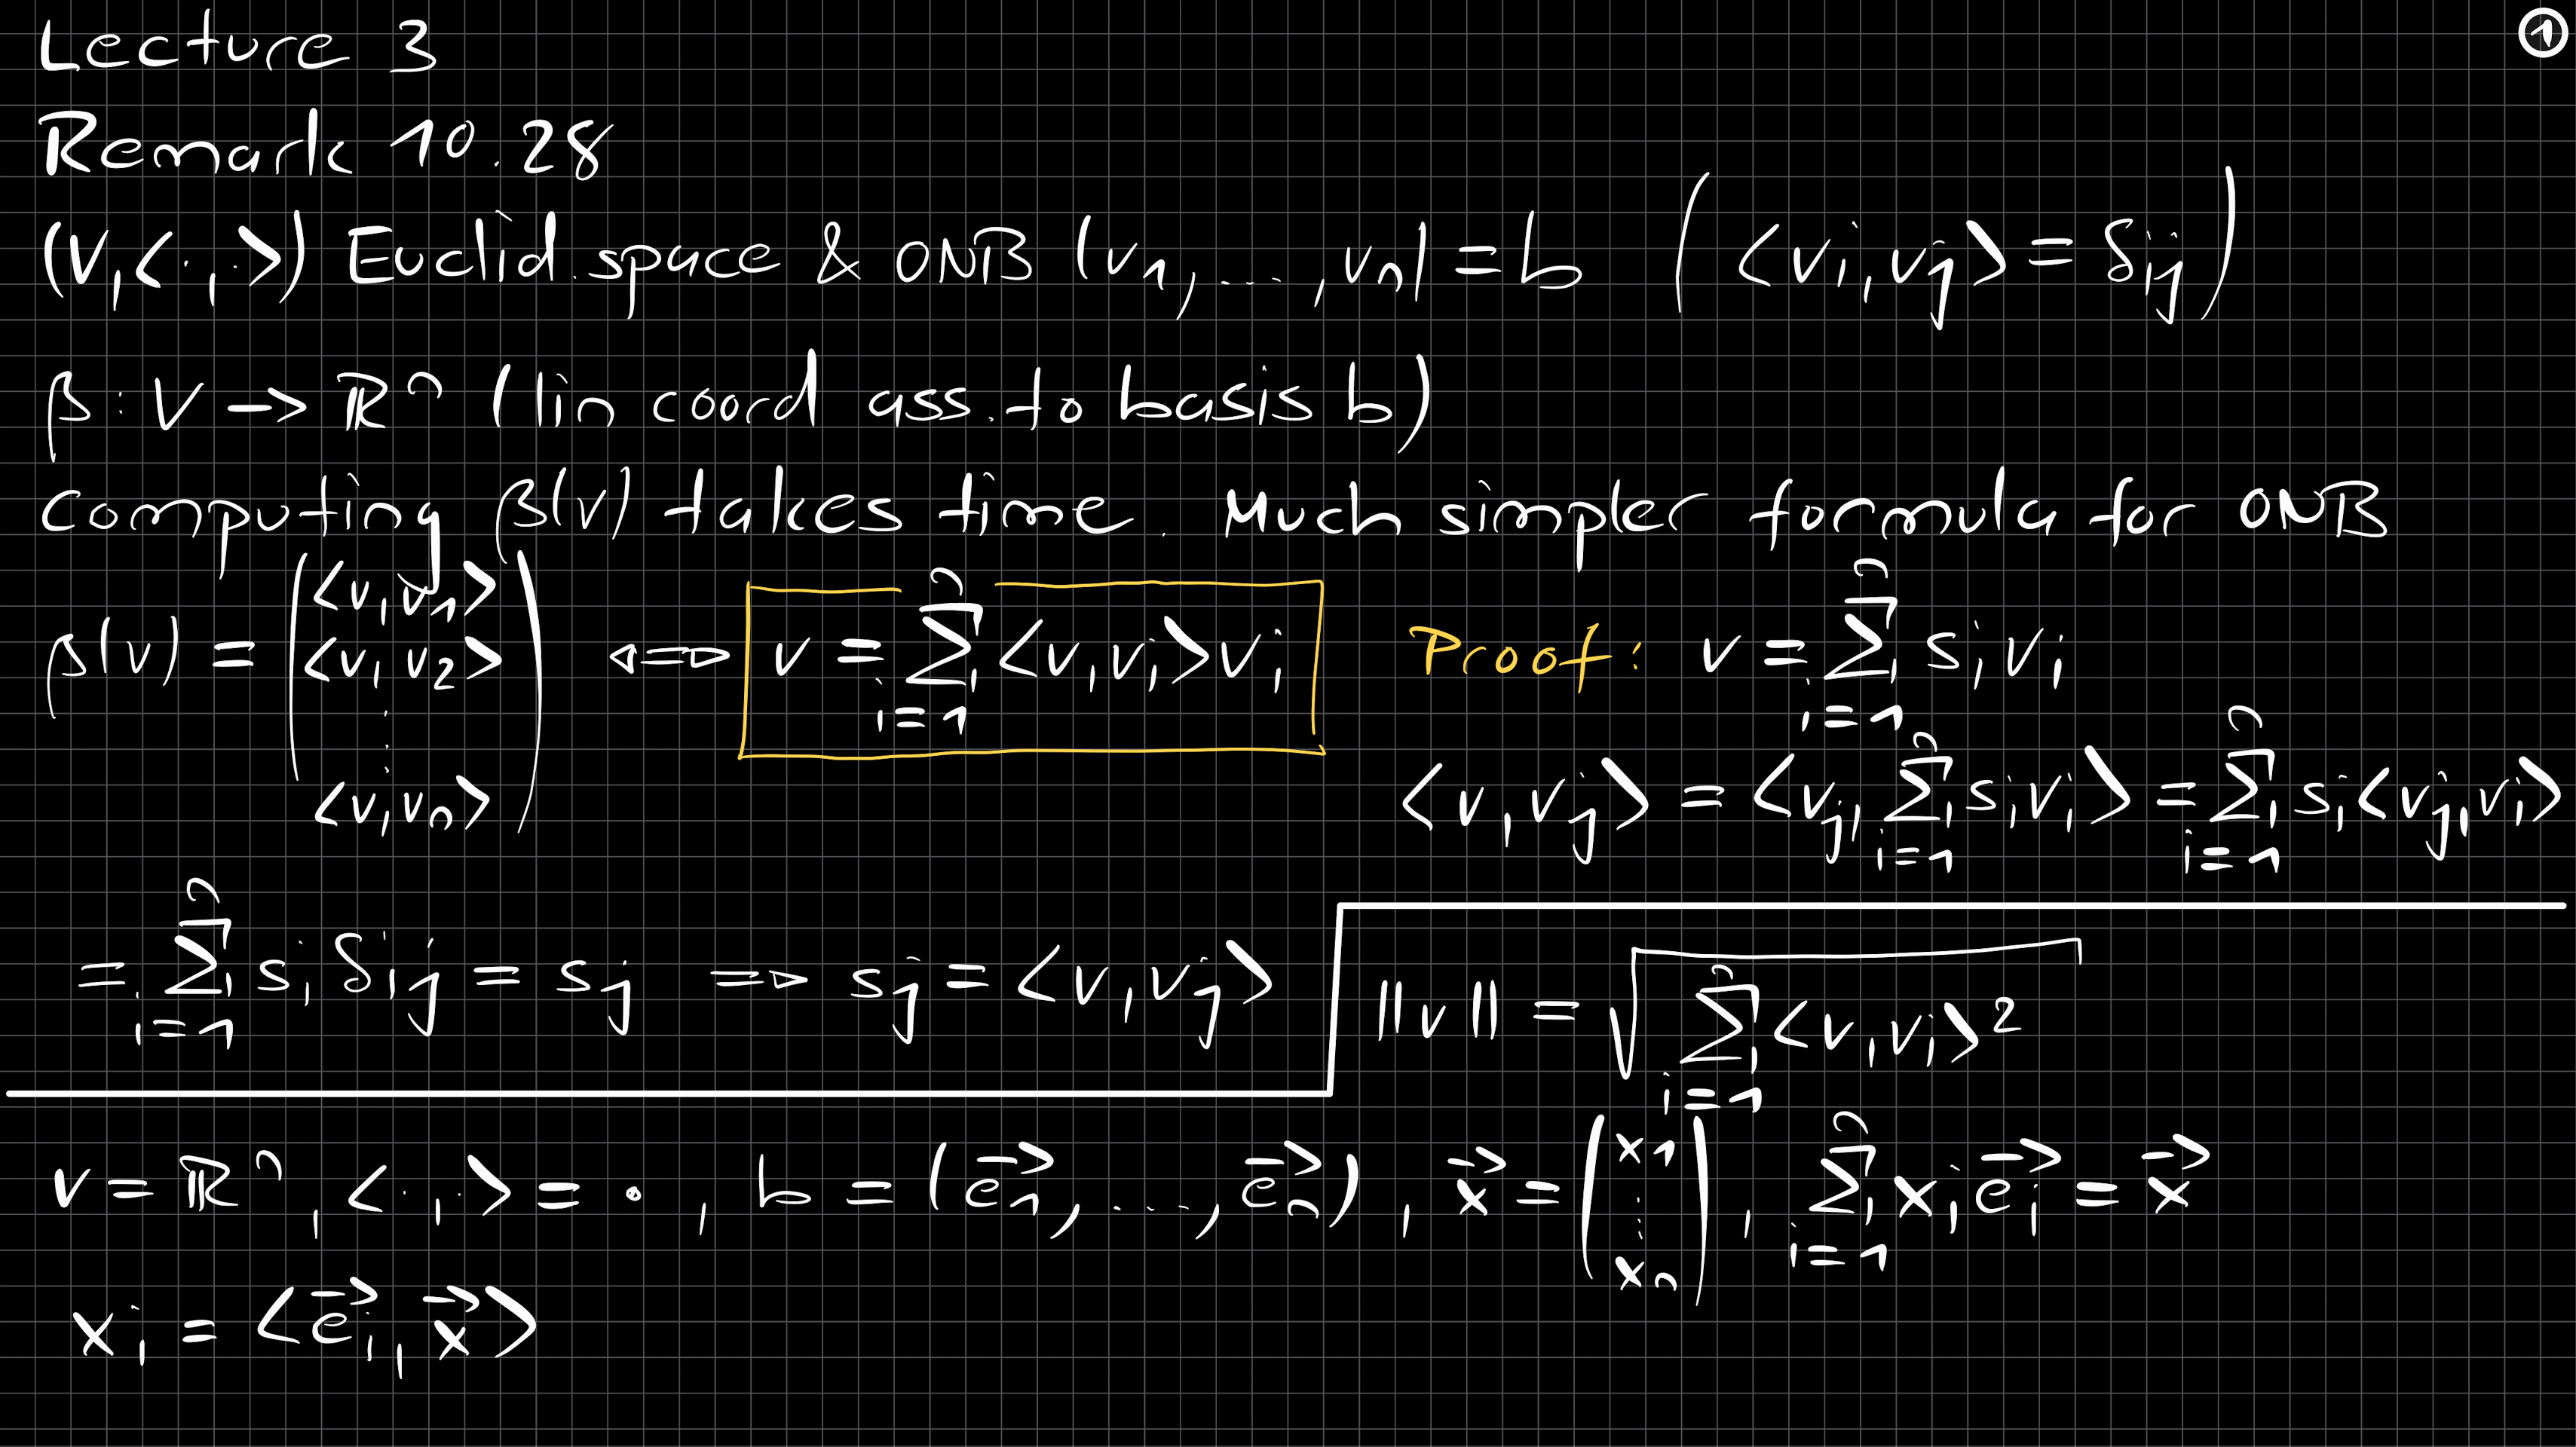 ①
Lecture 3
Remark 10.28
(V,<·,·>) Euclid. space & ONB (v₁,...,vₙ) = b (<vᵢ,vⱼ> = δᵢⱼ)
β: V -> ℝⁿ (lin coord ass. to basis b)
Computing β(v) takes time. Much simpler formula for ONB
β(v) = (<v,v₁> <v,v₂> ⋮ <v,vₙ>) <=> v = ∑ᵢ₌₁ⁿ <v,vᵢ>vᵢ Proof: v = ∑ᵢ₌₁ⁿ sᵢvᵢ
<v,vⱼ> = <vⱼ, ∑ᵢ₌₁ⁿ sᵢvᵢ> = ∑ᵢ₌₁ⁿ sᵢ<vⱼ,vᵢ>
= ∑ᵢ₌₁ⁿ sᵢ δᵢⱼ = sⱼ => sⱼ = <v,vⱼ>
||v|| = √(∑ᵢ₌₁ⁿ <v,vᵢ>²)
V = ℝⁿ, <·,·> = •, b = (e⃗₁,...,e⃗ₙ), x⃗ = (x₁ ⋮ xₙ), ∑ᵢ₌₁ⁿ xᵢe⃗ᵢ = x⃗
xᵢ = <e⃗ᵢ, x⃗>